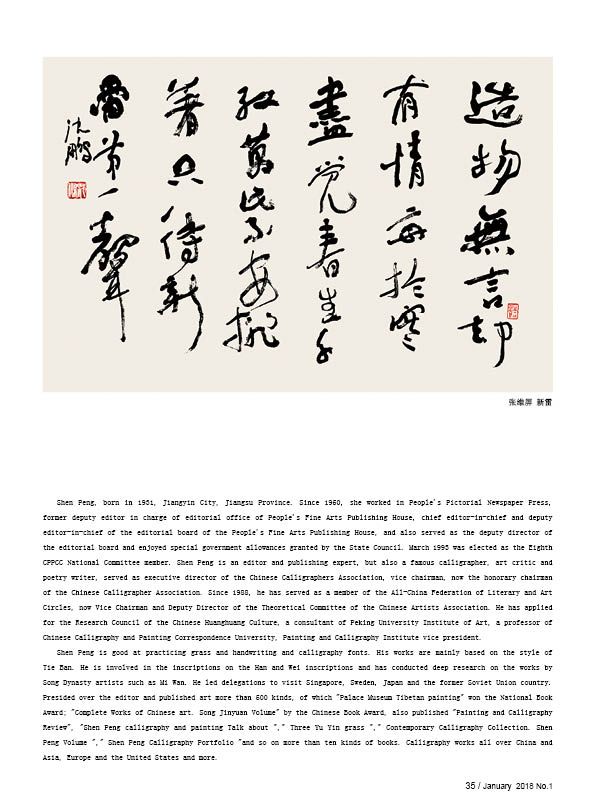 造物無言却
有情每於寒
盡覺春生千
紅萬紫安排
著只待新
雷第一聲
沈鵬
张维屏 新雷
Shen Peng, born in 1931, Jiangyin City, Jiangsu Province. Since 1950, she worked in People's Pictorial Newspaper Press,
former deputy editor in charge of editorial office of People's Fine Arts Publishing House, chief editor-in-chief and deputy
editor-in-chief of the editorial board of the People's Fine Arts Publishing House, and also served as the deputy director of
the editorial board and enjoyed special government allowances granted by the State Council. March 1993 was elected as the Eighth
CPPCC National Committee member. Shen Peng is an editor and publishing expert, but also a famous calligrapher, art critic and
poetry writer, served as executive director of the Chinese Calligraphers Association, vice chairman, now the honorary chairman
of the Chinese Calligrapher Association. Since 1988, he has served as a member of the All-China Federation of Literary and Art
Circles, now Vice Chairman and Deputy Director of the Theoretical Committee of the Chinese Artists Association. He has applied
for the Research Council of the Chinese Huanghuang Culture, a consultant of Peking University Institute of Art, a professor of
Chinese Calligraphy and Painting Correspondence University, Painting and Calligraphy Institute vice president.
Shen Peng is good at practicing grass and handwriting and calligraphy fonts. His works are mainly based on the style of
Tie Ban. He is involved in the inscriptions on the Han and Wei inscriptions and has conducted deep research on the works by
Song Dynasty artists such as Mi Wan. He led delegations to visit Singapore, Sweden, Japan and the former Soviet Union country.
Presided over the editor and published art more than 500 kinds, of which "Palace Museum Tibetan painting" won the National Book
Award; "Complete Works of Chinese art. Song Jinyuan Volume" by the Chinese Book Award, also published "Painting and Calligraphy
Review", "Shen Peng calligraphy and painting Talk about "," Three Yu Yin grass "," Contemporary Calligraphy Collection. Shen
Peng Volume "," Shen Peng Calligraphy Portfolio "and so on more than ten kinds of books. Calligraphy works all over China and
Asia, Europe and the United States and more.
35 / January 2018 No.1